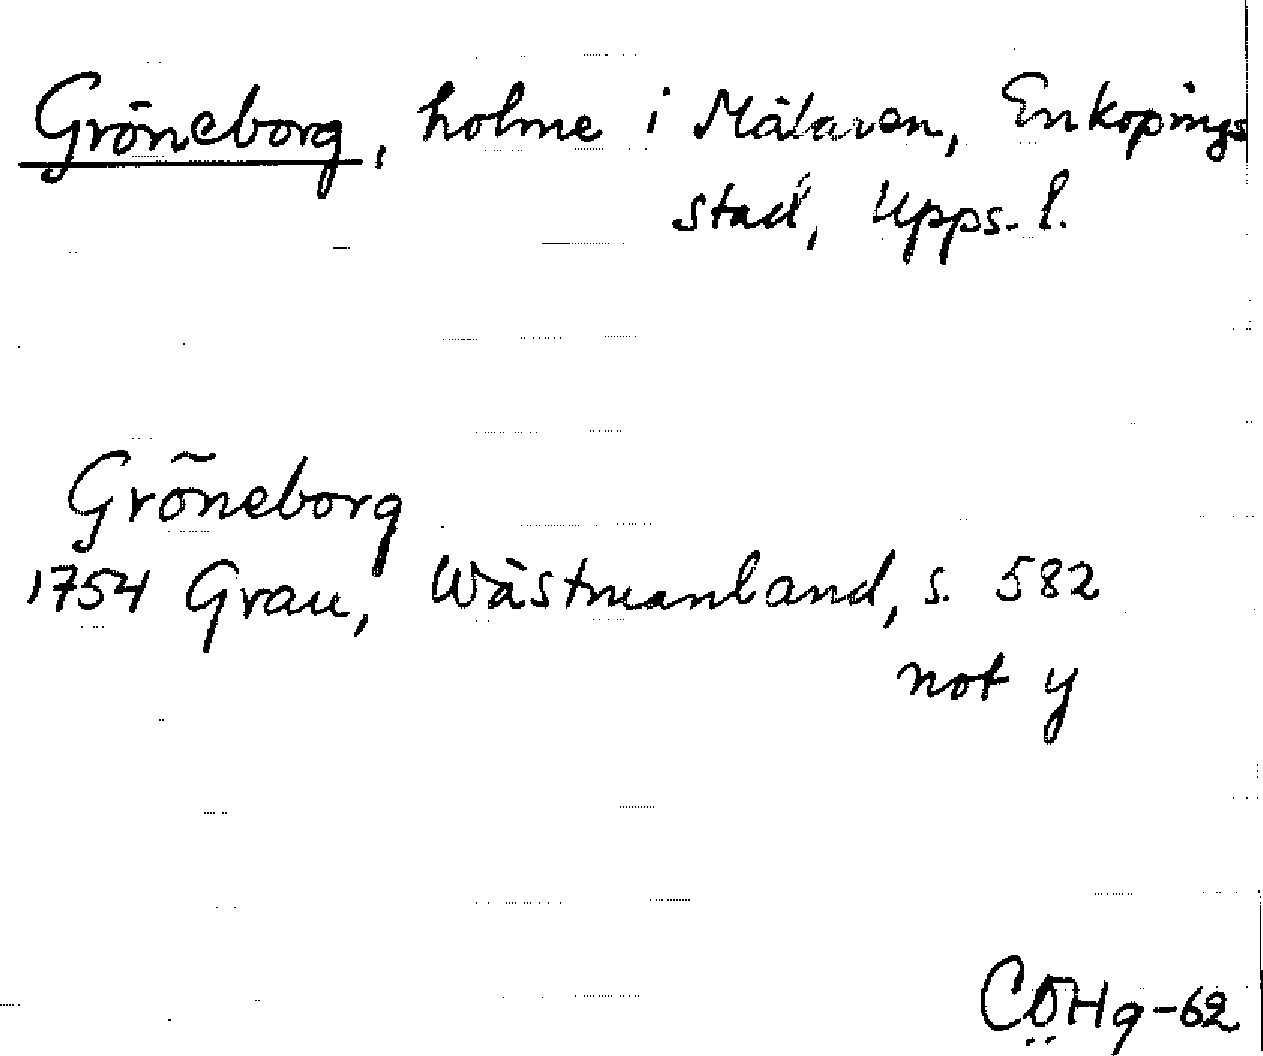 Gröneborg, holme i Mälaren, Enköpings
stad, Upps. l.
Gröneborg
1754 Grau, Wästmanland, s. 582
not y
CÖHg-62